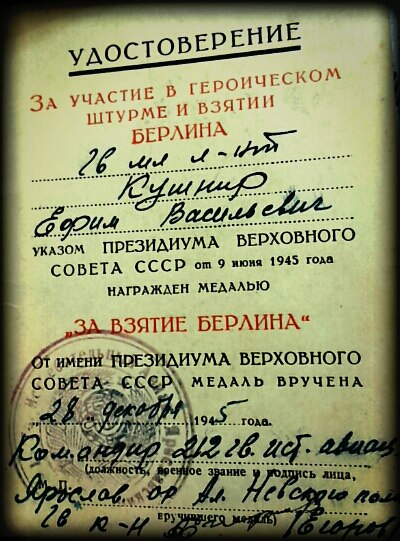 УДОСТОВЕРЕНИЕ
ЗА УЧАСТИЕ В ГЕРОИЧЕСКОМ
ШТУРМЕ И ВЗЯТИИ
БЕРЛИНА
гв мл л-нт
Кушнир
Ефим Васильевич
УКАЗОМ ПРЕЗИДИУМА ВЕРХОВНОГО
СОВЕТА СССР от 9 июня 1945 года
НАГРАЖДЕН МЕДАЛЬЮ
„ЗА ВЗЯТИЕ БЕРЛИНА“
От имени ПРЕЗИДИУМА ВЕРХОВНОГО
СОВЕТА СССР МЕДАЛЬ ВРУЧЕНА
„28„ декабря 1945 года.
Командир 212 гв. ист. авиац
(должность, военное звание и подпись лица,
М. П.
Ярослав. ор Ал. Невского пол
вручившего медаль)
гв к-н Егоров